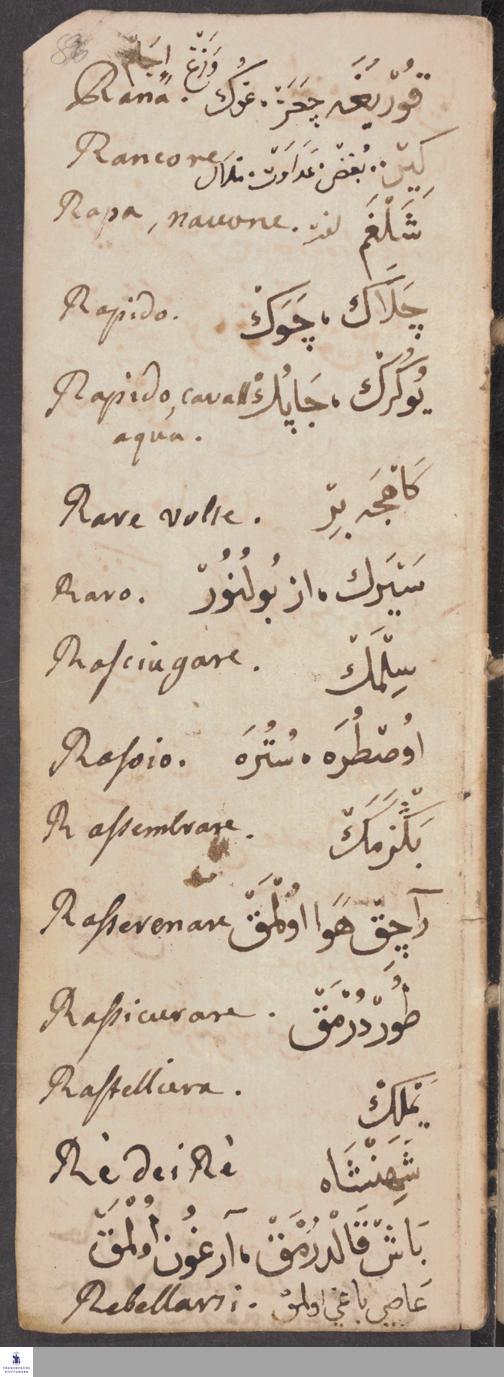 86
Rana. قُورْبَغَه جَغَزْ، غُوكْ وَزَغْ
Rancore. كِينْ، بُغْضْ، عَدَاوَتْ
Rapa, navone. شَلْغَمْ
Rapido. چَلَاكْ، چَوَكْ
Rapido, cavallo, يُوكُرَكْ، جَاپُكْ
aqua.
Rare volte. بِرْ
Raro. سَيْرَك، از بُولُنُورْ
Rasciugare. سِلْمَكْ
Rasoio. اُوصْطُرَه، سُتُرَه
Rassembrare. بَكْزَمَكْ
Rasserenare آچِقْ هَوَا اُولْمَقْ
Rassicurare. طُورْدُرْمَقْ
Rastelliera. يَمْلِكْ
Rè dei Rè شَهِنْشَاه
بَاشْ قَالْدُرْمَقْ، آزغُون اُولْمَقْ
Rebellarsi. عَاصِي بَاغِي اولمق
FRANCKESCHE STIFTUNGEN